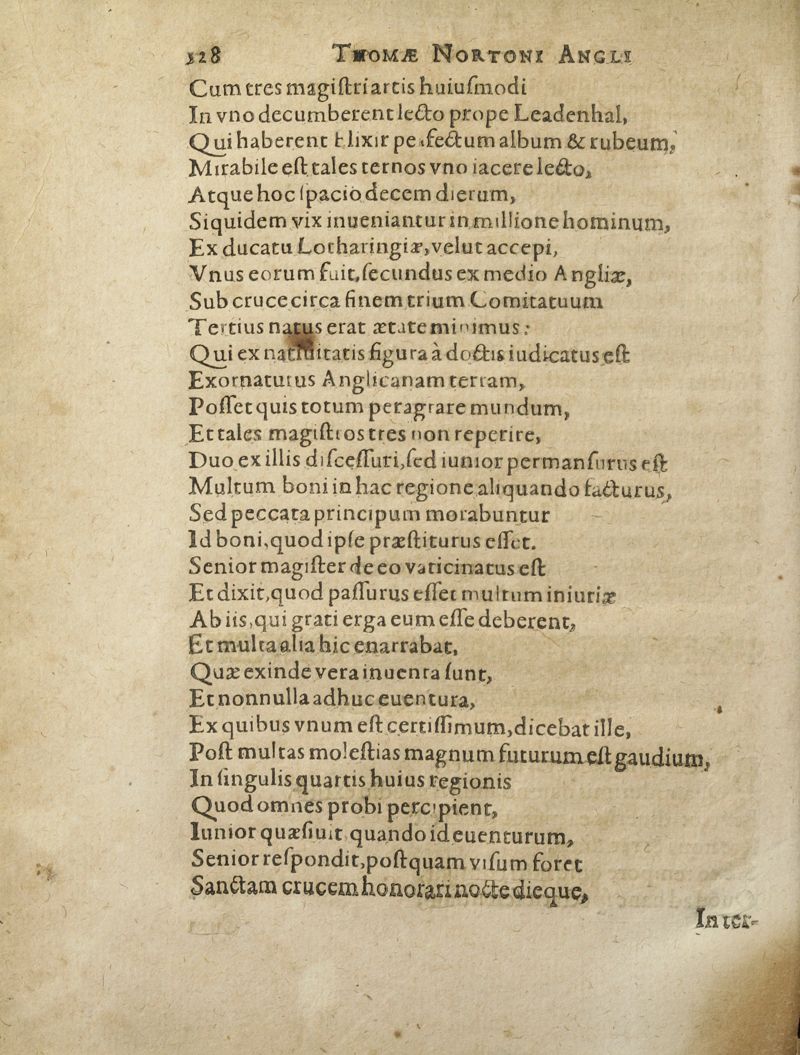 128 THOMÆ NORTONI ANGLI
Cum tres magiſtri artis huiuſmodi
In vno decumberent lecto prope Leadenhal,
Qui haberent Elixir perfectum album & rubeum,
Mirabile eſt tales ternos vno iacere lecto,
Atque hoc ſpacio decem dierum,
Siquidem vix inueniantur in millione hominum,
Ex ducatu Lotharingiæ, velut accepi,
Vnus eorum fuit, ſecundus ex medio Angliæ,
Sub cruce circa finem trium Comitatuum
Tertius natus erat ætate minimus:
Qui ex natiuitatis figura à doctis iudicatus eſt
Exornaturus Anglicanam terram,
Poſſet quis totum peragrare mundum,
Et tales magiſtros tres non reperire,
Duo ex illis diſceſſuri, ſed iunior permanſurus eſt
Multum boni in hac regione aliquando facturus,
Sed peccata principum morabuntur
Id boni, quod ipſe præſtiturus eſſet.
Senior magiſter de eo vaticinatus eſt
Et dixit, quod paſſurus eſſet multum iniuriæ
Ab iis, qui grati erga eum eſſe deberent,
Et multa alia hic enarrabat,
Quæ exinde vera inuenta ſunt,
Et nonnulla adhuc euentura,
Ex quibus vnum eſt certiſſimum, dicebat ille,
Poſt multas moleſtias magnum futurum eſt gaudium,
In ſingulis quartis huius regionis
Quod omnes probi percipient,
Iunior quæſiuit quando id euenturum,
Senior reſpondit, poſtquam viſum foret
Sanctam crucem honorari nocte dieque,
Inter-